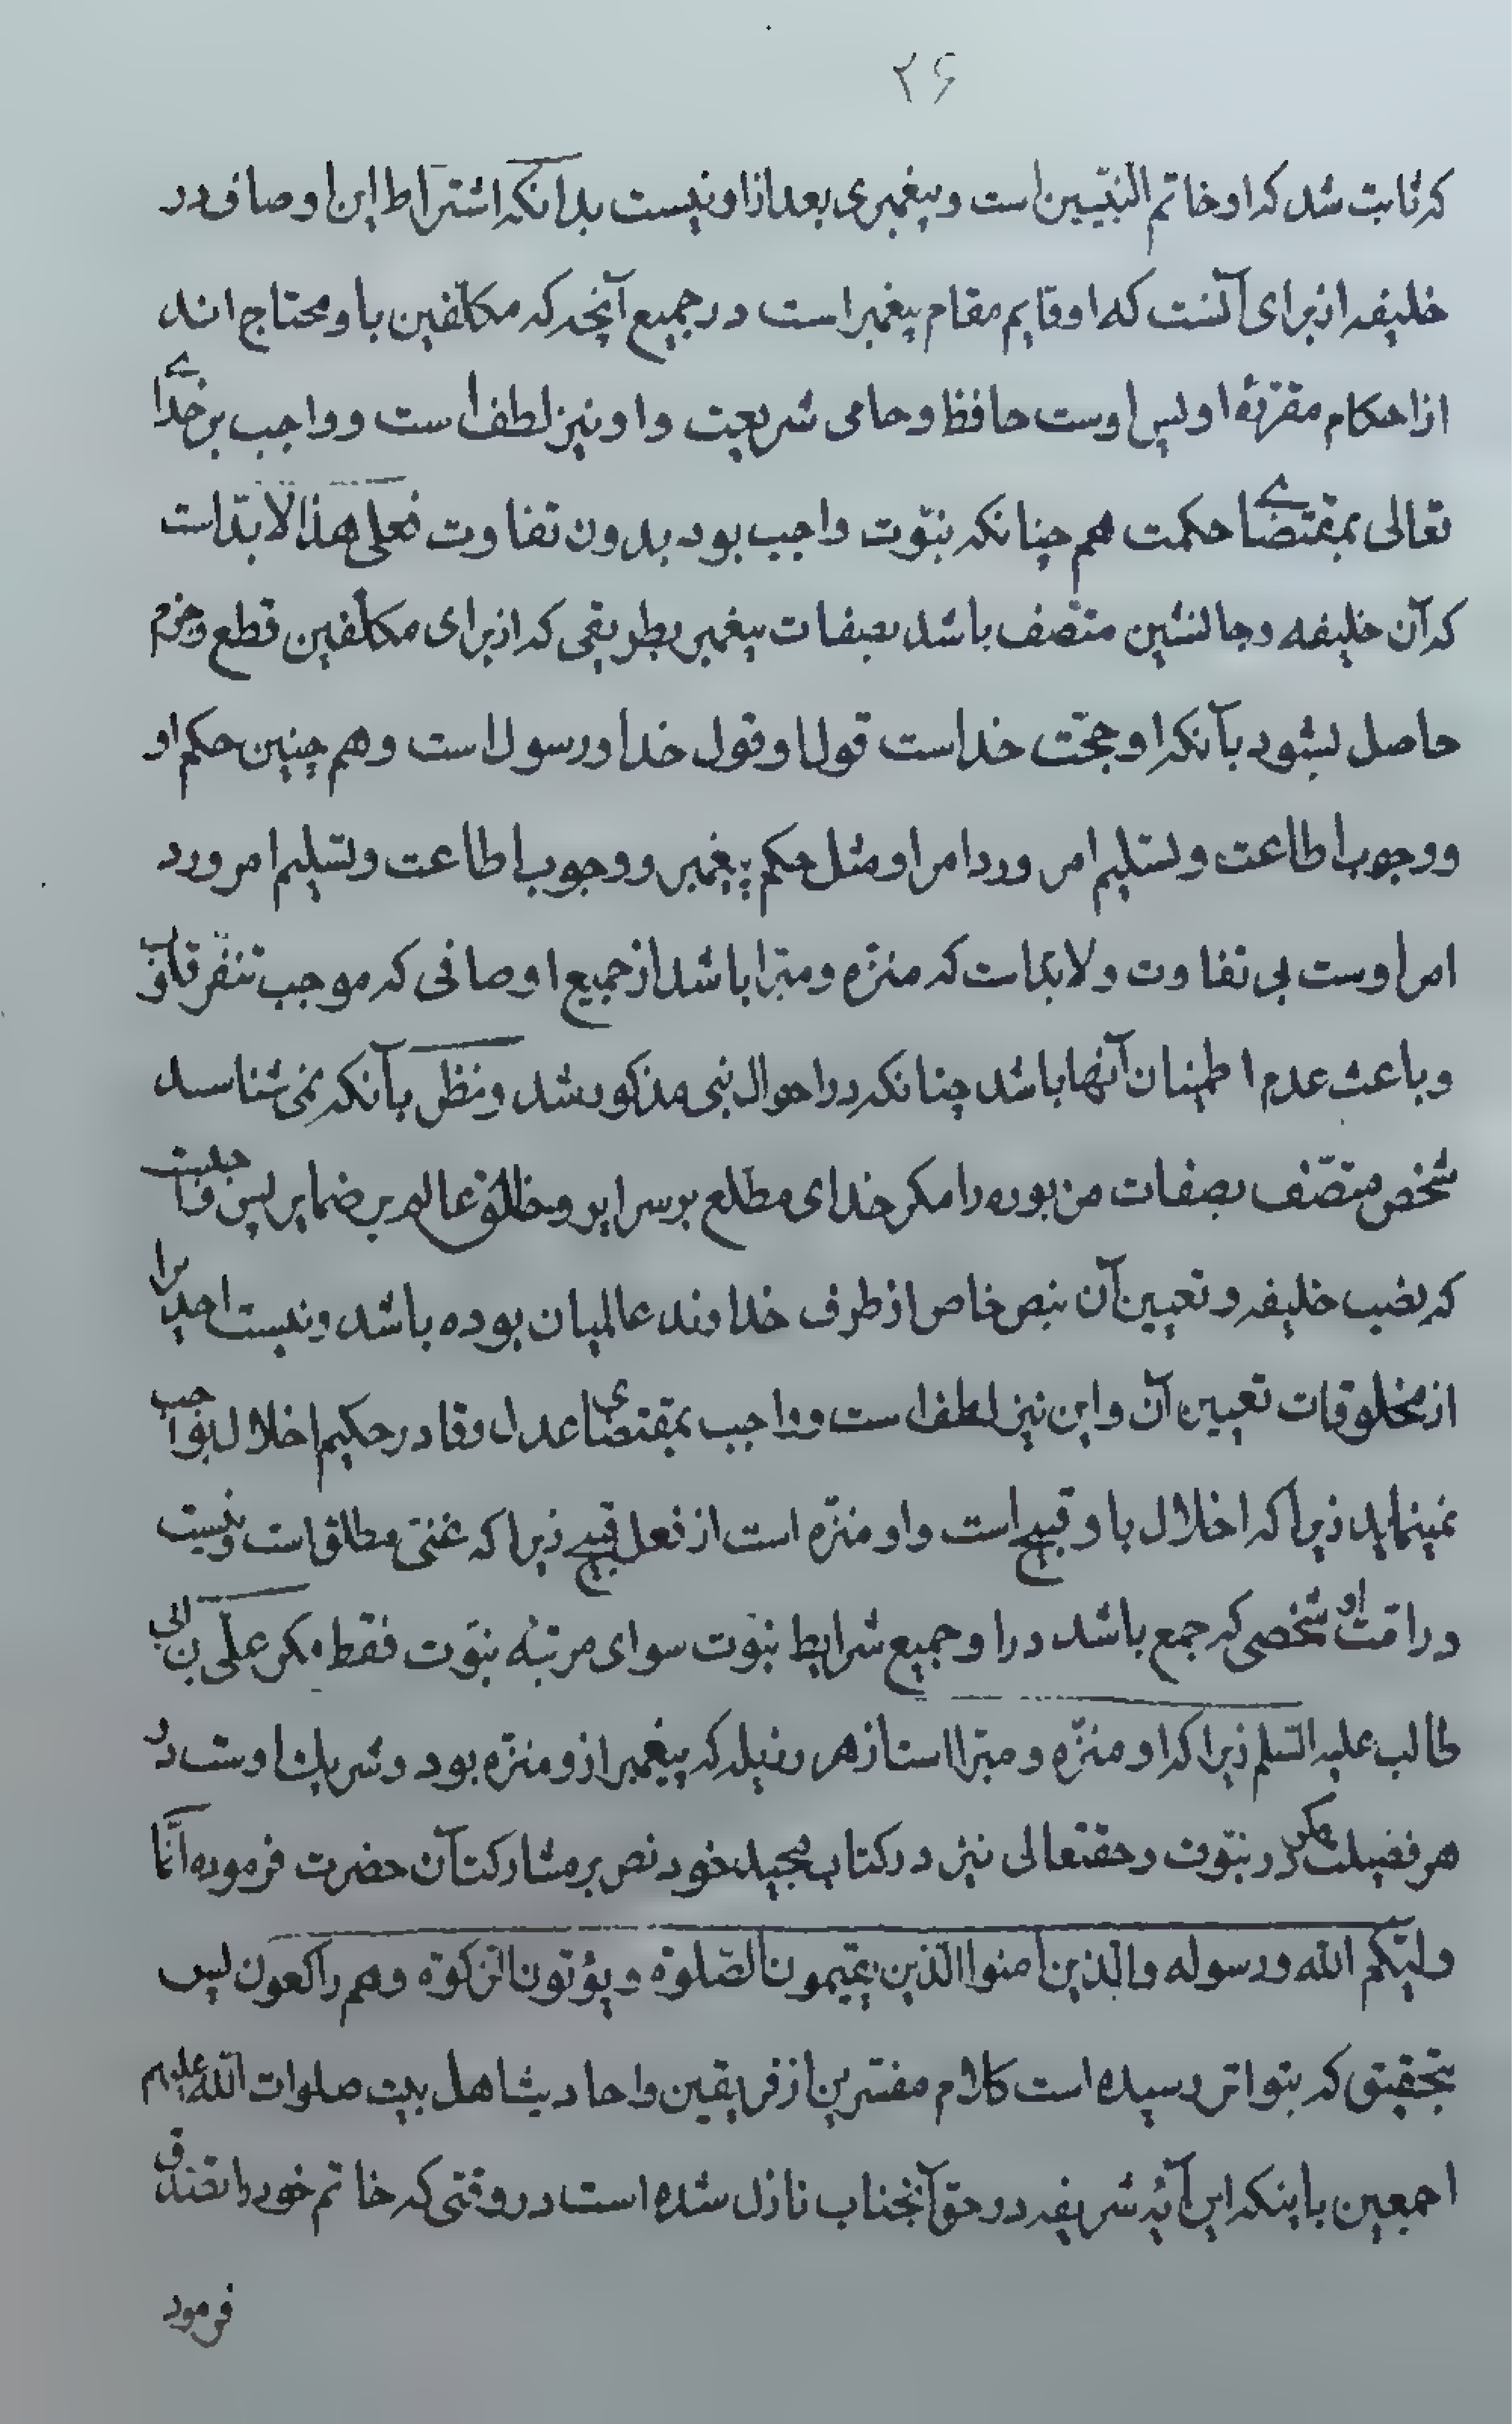 ۲۶
که ثابت شد که او خاتم النبیّین است و پیغمبری بعد از او نیست بدانکه اشتراط این اوصاف در
خلیفه از برای آنست که او قایم مقام پیغمبر است در جمیع آنچه که مکلّفین باو محتاج اند
از احکام مقرّرهٔ او پس اوست حافظ و حامی شریعت و او نیز لطف است و واجب بر خدای
تعالی بمقتضای حکمت هم چنانکه نبوّت واجب بود بدون تفاوت فعلی هذا لابدّ است
که آن خلیفه و جانشین متّصف باشد بصفات پیغمبر بطریقی که از برای مکلّفین قطع و جزم
حاصل بشود بآنکه او حجّت خداست قول او قول خدا و رسول است و هم چنین حکم او
و وجوب اطاعت و تسلیم امر و رد امر او مثل حکم پیغمبر و وجوب اطاعت و تسلیم امر و رد
امر اوست بی تفاوت و لابد است که منزّه و مبرّا باشد از جمیع اوصافی که موجب تنفّر قلوب
و باعث عدم اطمینان آنها باشد چنانکه در احوال نبی مذکور شد و نظر بآنکه نمی شناسد
شخص متّصف بصفات مزبوره را مکر خدای مطّلع بر سرایر و خالق عالم بر ضمایر پس
که نصب خلیفه و تعیین آن بنص خاص از طرف خداوند عالمیان بوده باشد و نیست احدی را
از مخلوقات تعیین آن و این نیز لطف است و واجب بمقتضای عدل و قادر حکیم اخلال بواجب
نمینماید زیرا که اخلال باو قبیح است و او منزّه است از فعل قبیح زیرا که غنی مطلق است و نیست
در امّت او شخصی که جمع باشد در او جمیع شرایط نبوّت سوای مرتبهٔ نبوّت فقط مکر علی بن ابی
طالب علیه السّلم زیرا که او منزّه و مبرّا است از هر رذیله که پیغمبر از و منزّه بود و شریک اوست در
هر فضیلت مکر در نبوّت و حقتعالی نیز در کتاب مجید خود نص بر مشارکت آن حضرت فرموده انّما
ولیّکم الله و رسوله والّذین امنوا الّذین یقیمون الصّلوة و یؤتون الزکوة و هم راکعون پس
بتحقیق که بتواتر رسیده است کلام مفسّرین از فریقین و احادیث اهل بیت صلوات الله علیهم
اجمعین باینکه این آیهٔ شریفه در حق آنجناب نازل شده است در وقتی که خاتم خود را تصدق
فرمود